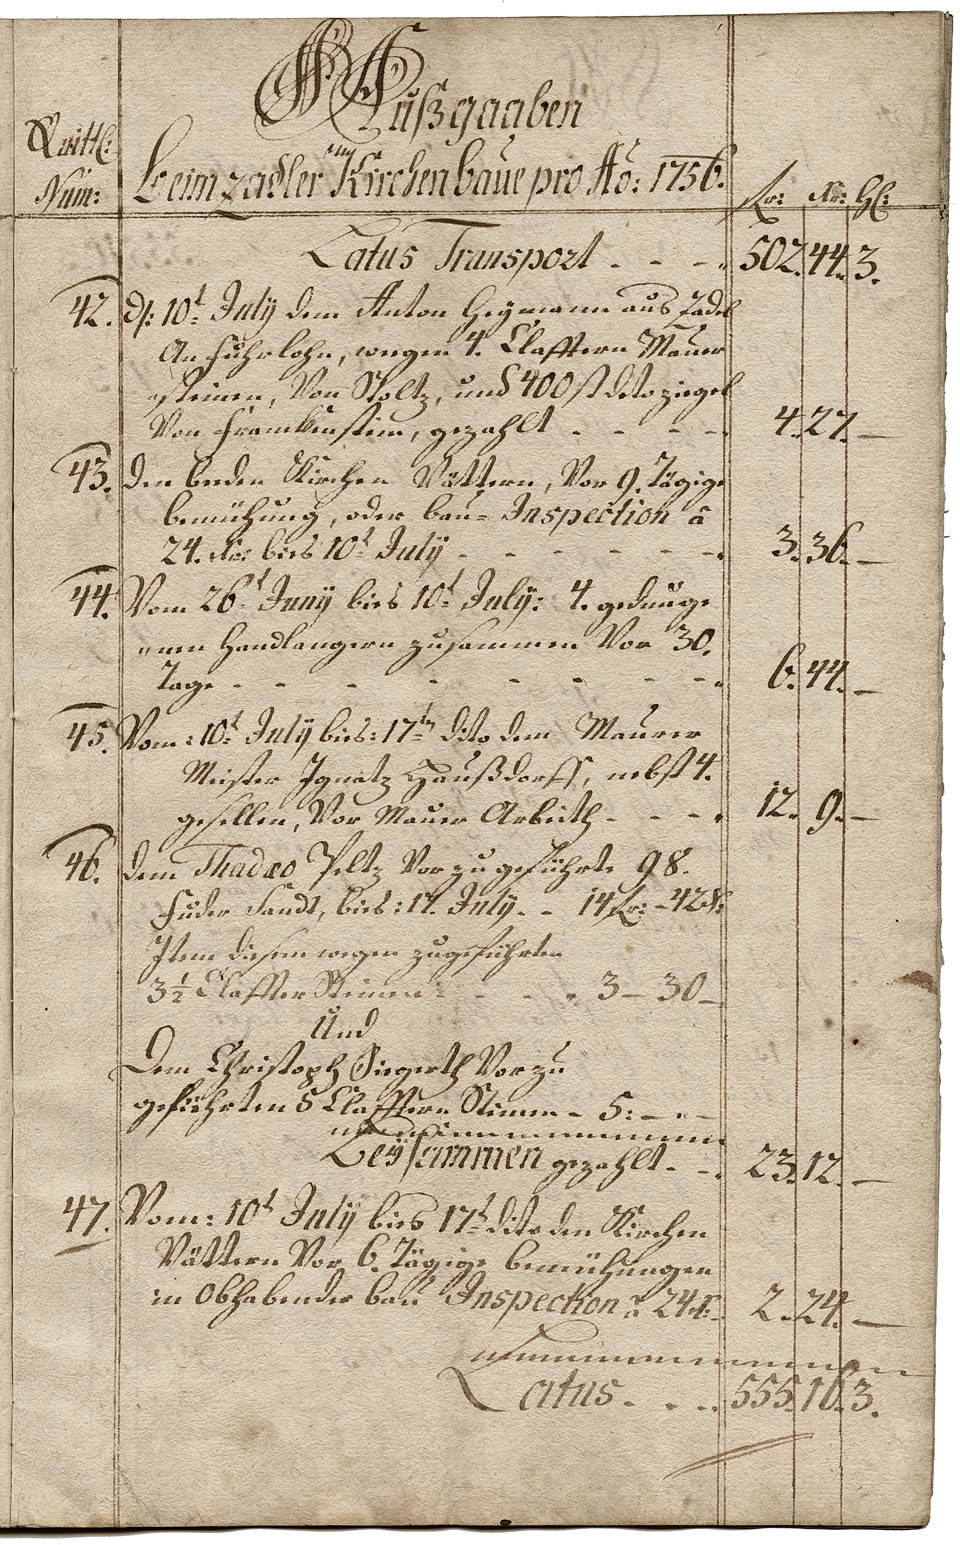 Außgaaben
Quitt:
Num:
Beim zadler Kirchenbaue pro Ao: 1756.
fr: Kr: Hl:
Latus Transport - - - 502. 44. 3.
42. d: 10t July dem Anton Heymann aus Zadel
An fuhrlohn, wegen 4. Clafftern Mauer
steinen, Von Stoltz, und 400 st dito ziegel
Von Franckenstein, gezahlt - - - - 4. 27. —
43. den beeden Kirchen Vättern, Vor 9. Tägige
bemühung, oder bau-Inspection â
24. Kr: bies 10t July - - - - - - 3. 36. —
44. Vom 26t Juny bies 10t July: 4. gedunge
nen Handlangern zusammen Vor 30.
Tage - - - - - - - 6. 44. —
45. Vom: 10t July bies: 17tn dito dem Maurer
Meister Ignatz Haußdorff, nebst 4.
gesellen, Vor Mauer Arbeith - - - 12. 9. —
46. dem Thadæo Peltz Vor zu geführte 98.
fuder Sandt, bies: 17. July - - 14 fr: - 42 Kr:
Item diesem wegen zugeführten
3½ Claffter Steinen: - - - 3 — 30 —
Und
Dem Christoph Siegerth Vor zu
geführten 5 Clafftern Steine - 5: — —
Beysammen gezahlt - - 23. 12. —
47. Vom: 10t July bies 17t dito den Kirchen
Vättern Vor 6. Tägige bemühungen
in Obhabender bau Inspection â 24 Kr: 2. 24. —
Latus - - - 555. 16. 3.